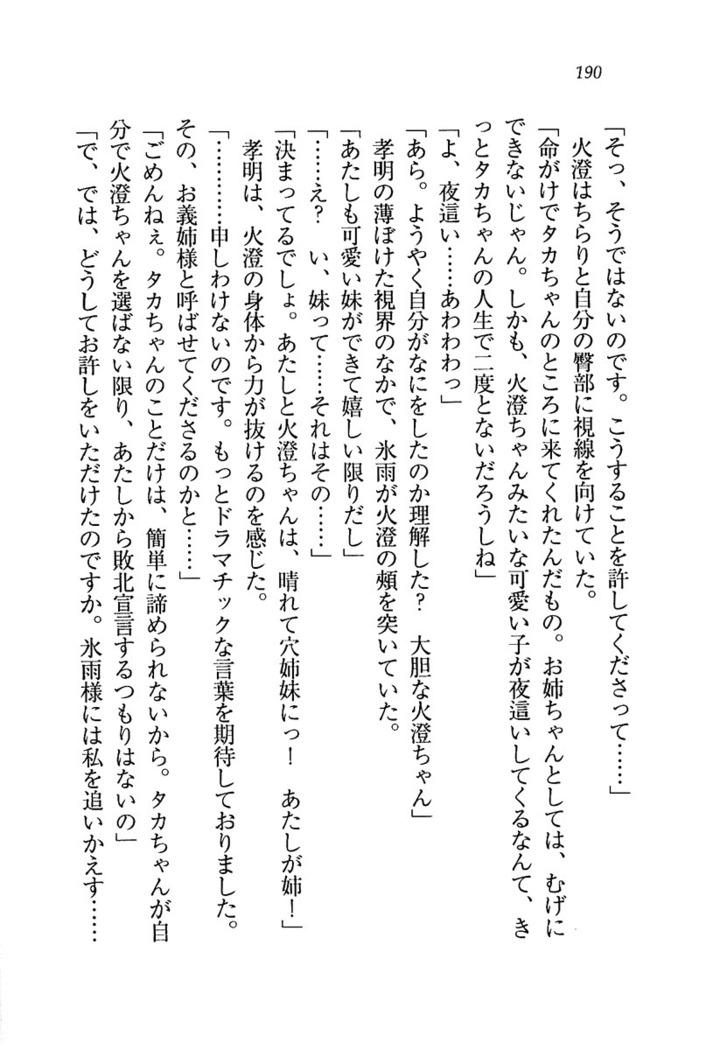 190
「そっ、そうではないのです。こうすることを許してくださって……」
火澄はちらりと自分の臀部に視線を向けていた。
「命がけでタカちゃんのところに来てくれたんだもの。お姉ちゃんとしては、むげに
できないじゃん。しかも、火澄ちゃんみたいな可愛い子が夜這いしてくるなんて、き
っとタカちゃんの人生で二度とないだろうしね」
「よ、夜這い……あわわわっ」
「あら。ようやく自分がなにをしたのか理解した？　大胆な火澄ちゃん」
孝明の薄ぼけた視界のなかで、氷雨が火澄の頰を突いていた。
「あたしも可愛い妹ができて嬉しい限りだし」
「……え？　い、妹って……それはその……」
「決まってるでしょ。あたしと火澄ちゃんは、晴れて穴姉妹にっ！　あたしが姉！」
孝明は、火澄の身体から力が抜けるのを感じた。
「…………申しわけないのです。もっとドラマチックな言葉を期待しておりました。
その、お義姉様と呼ばせてくださるのかと……」
「ごめんねぇ。タカちゃんのことだけは、簡単に諦められないから。タカちゃんが自
分で火澄ちゃんを選ばない限り、あたしから敗北宣言するつもりはないの」
「で、では、どうしてお許しをいただけたのですか。氷雨様には私を追いかえす……